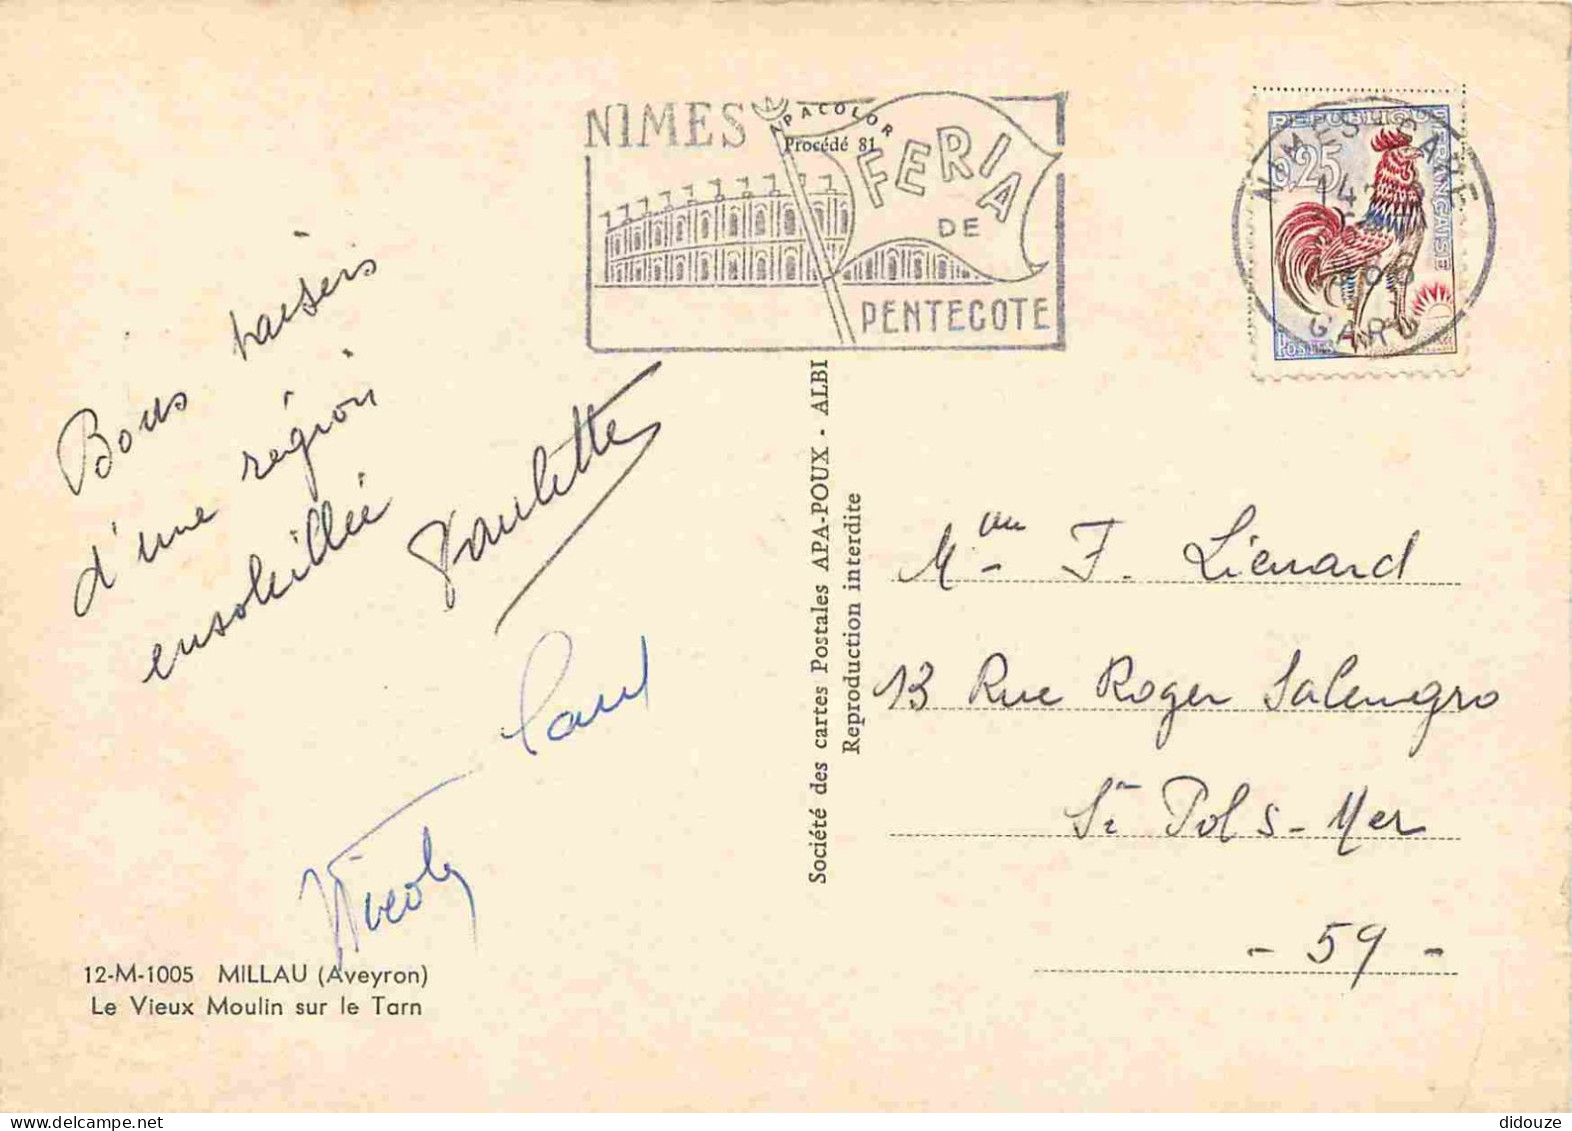 NIMES
APACOLOR
Procédé 81
FERIA
DE
PENTECOTE
REPUBLIQUE FRANÇAISE
0,25
POSTES
NIMES-GARE
GARD
Bons baisers
d'une région
ensoleillée
Paulette
Paul
Nicole
Société des cartes Postales APA-POUX - ALBI
Reproduction interdite
Mme F. Liénard
13 Rue Roger Salengro
St Pol s-Mer
- 59 -
12-M-1005 MILLAU (Aveyron)
Le Vieux Moulin sur le Tarn
didouze